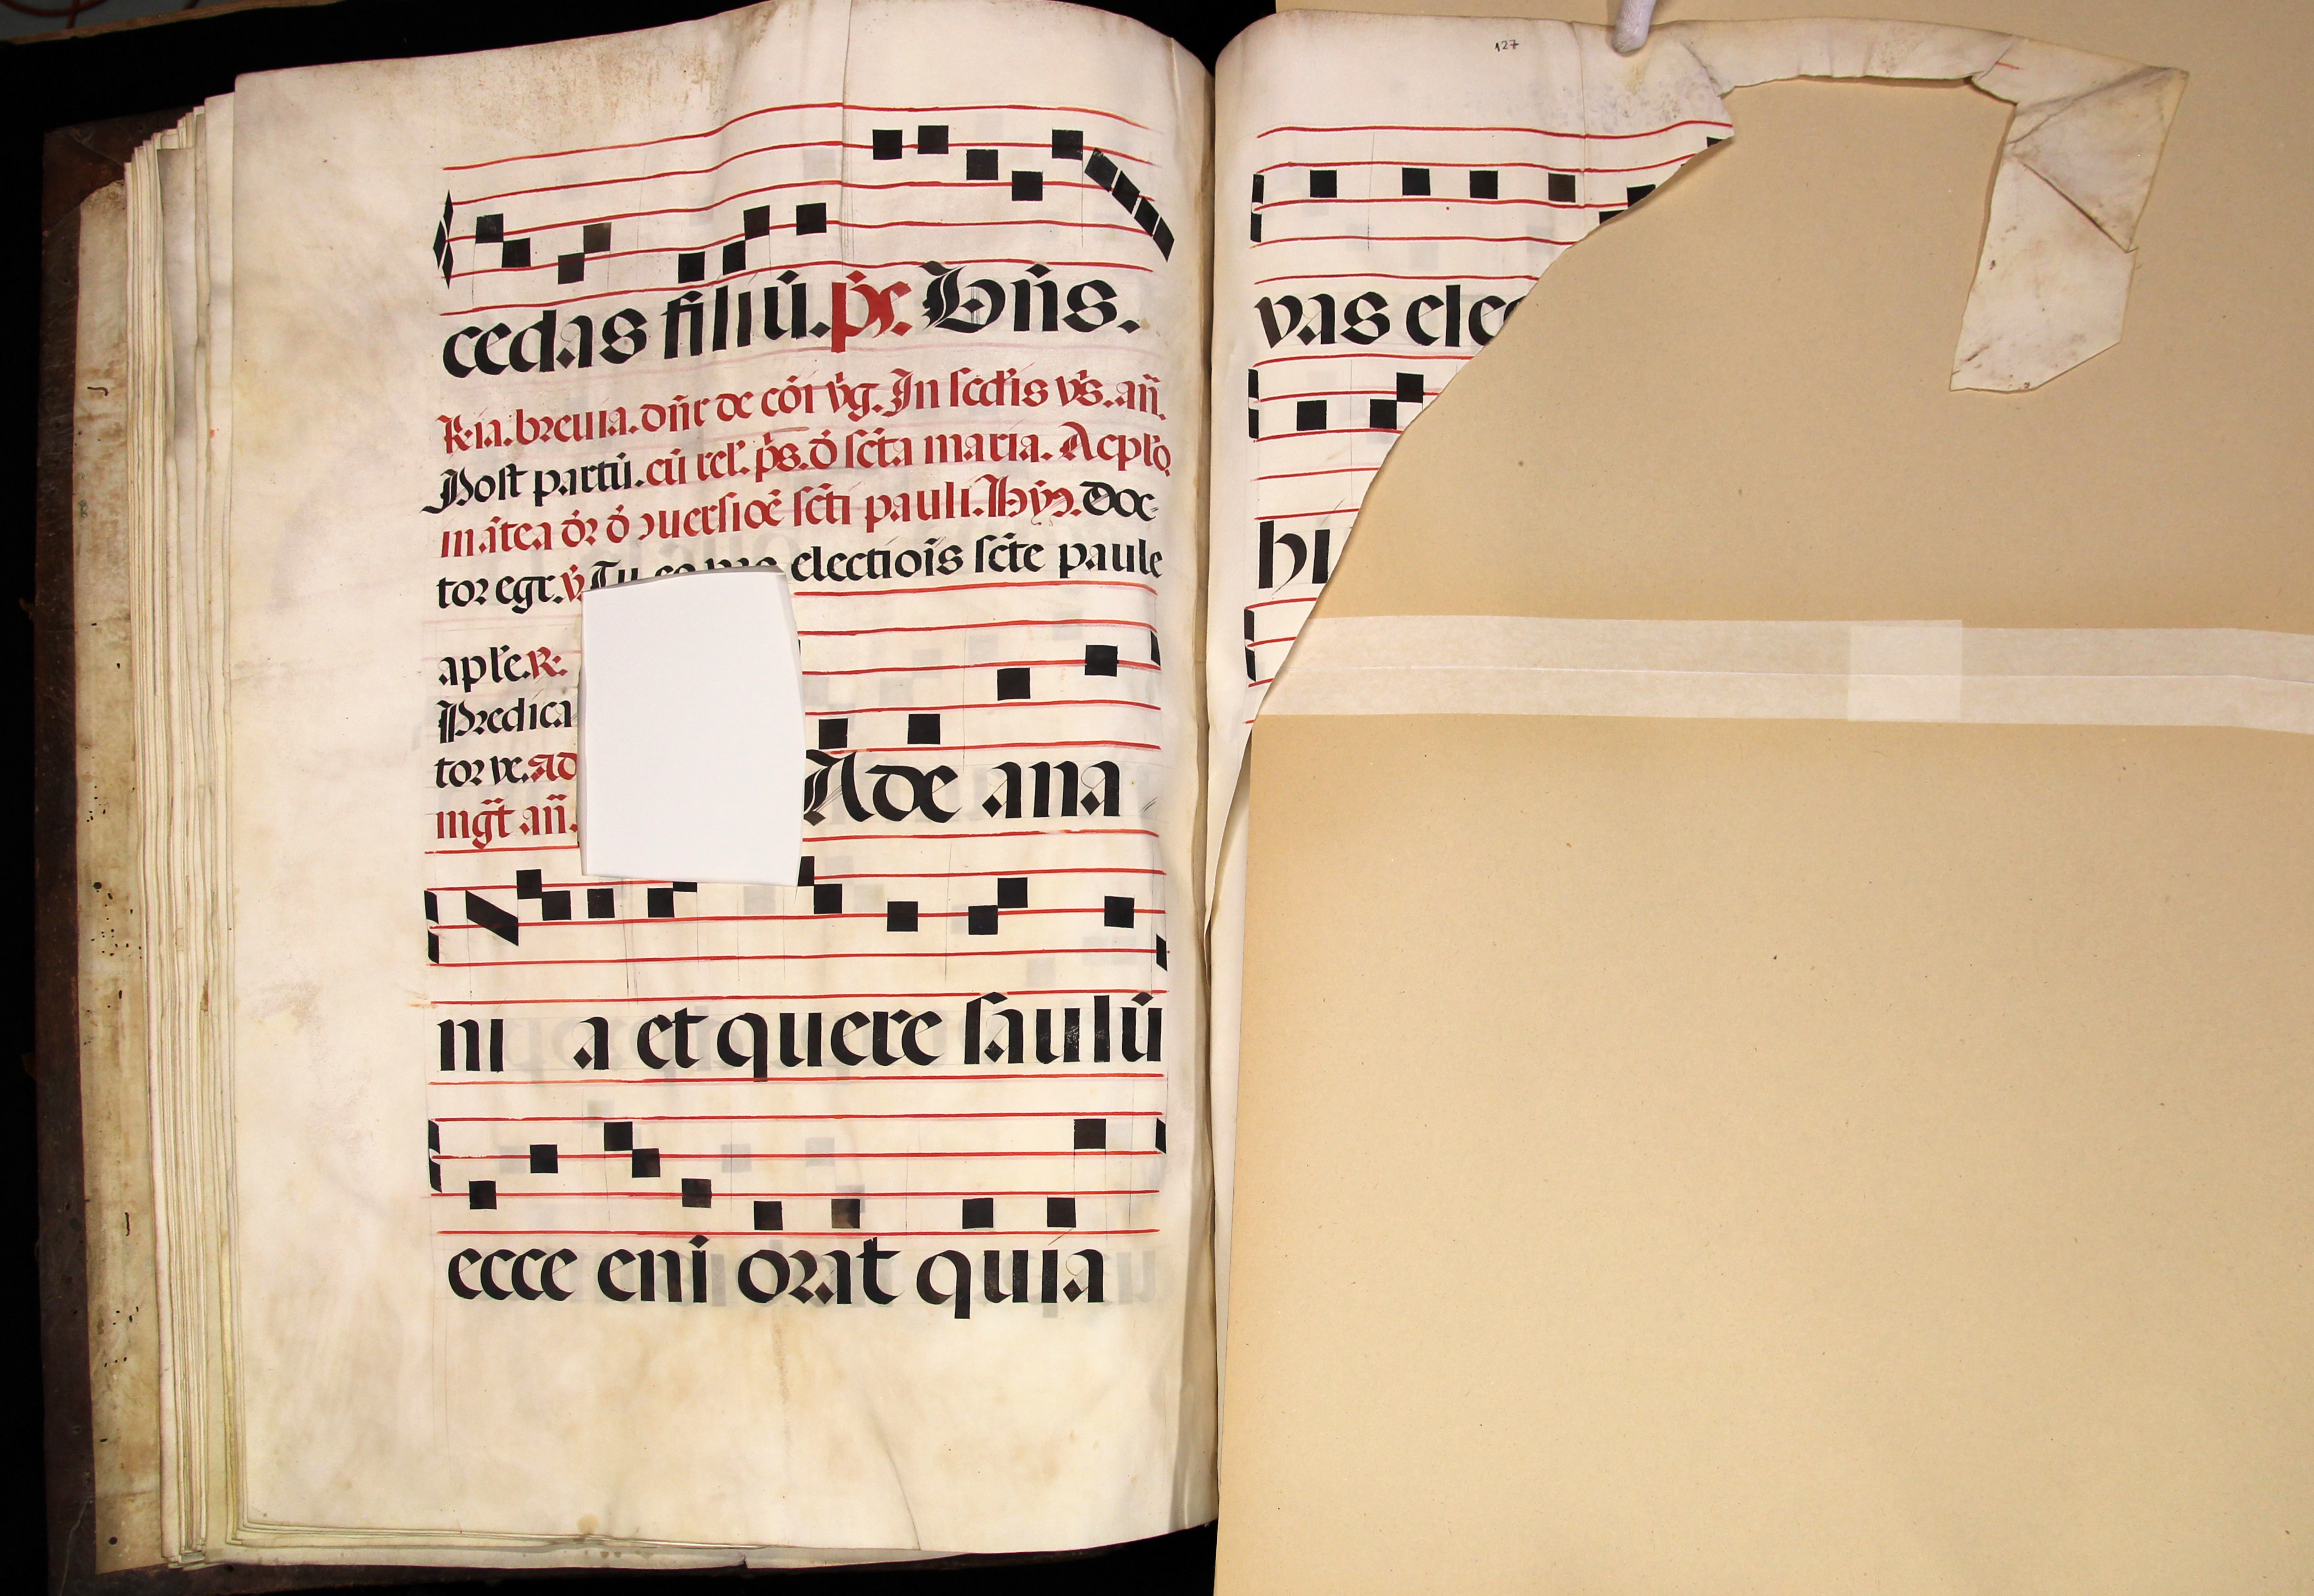 cedas filiū. ps. Bn̄s.
R. ia. breuia. dn̄r de cōi v̄g. In scd̄is vs̄. an̄.
Post partū. cū rel'. ps. ō scta maria. Ac plō.
matea or ō ɔuersioē scti pauli. Hy. Doc
tor egr. v̄. Tu es electiois scte paule
aplē. R.
Predica
tor ve. ad
mgt̄ an̄.
Ade ana
ni a et quere saulū
ecce eni orat quia
127
vas elec
hi